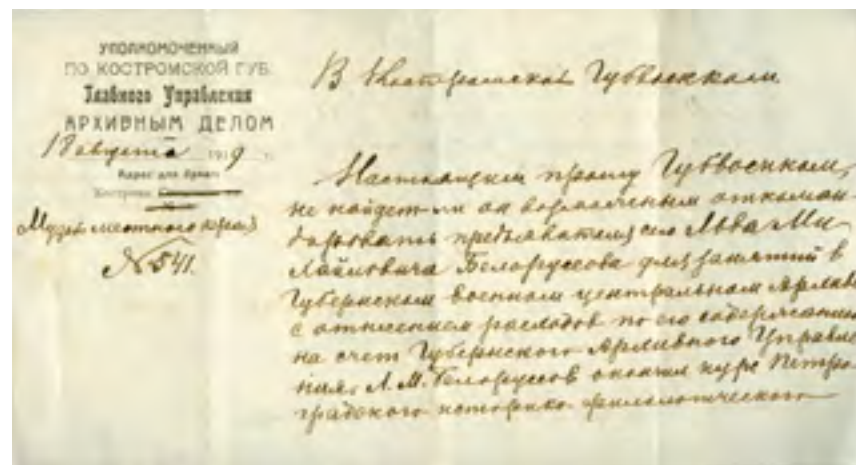 УПОЛНОМОЧЕННЫЙ
ПО КОСТРОМСКОЙ ГУБ.
Главного Управления
АРХИВНЫМ ДЕЛОМ
18 августа 1919 г.
Адрес для бумаг:
Кострома,
Музей местного края
№ 541.
В Костромской Губвоенком
Настоящим прошу Губвоенком,
не найдет-ли он возможным откоман-
дировать предъявителя сего Льва Ми-
хайловича Белоруссова для занятий в
Губернском военном центральном Архиве
с отнесением расходов по его содержанию
на счет Губернского Архивного Управле-
ния. Л. М. Белоруссов окончил курс Петро-
градского историко-филологического